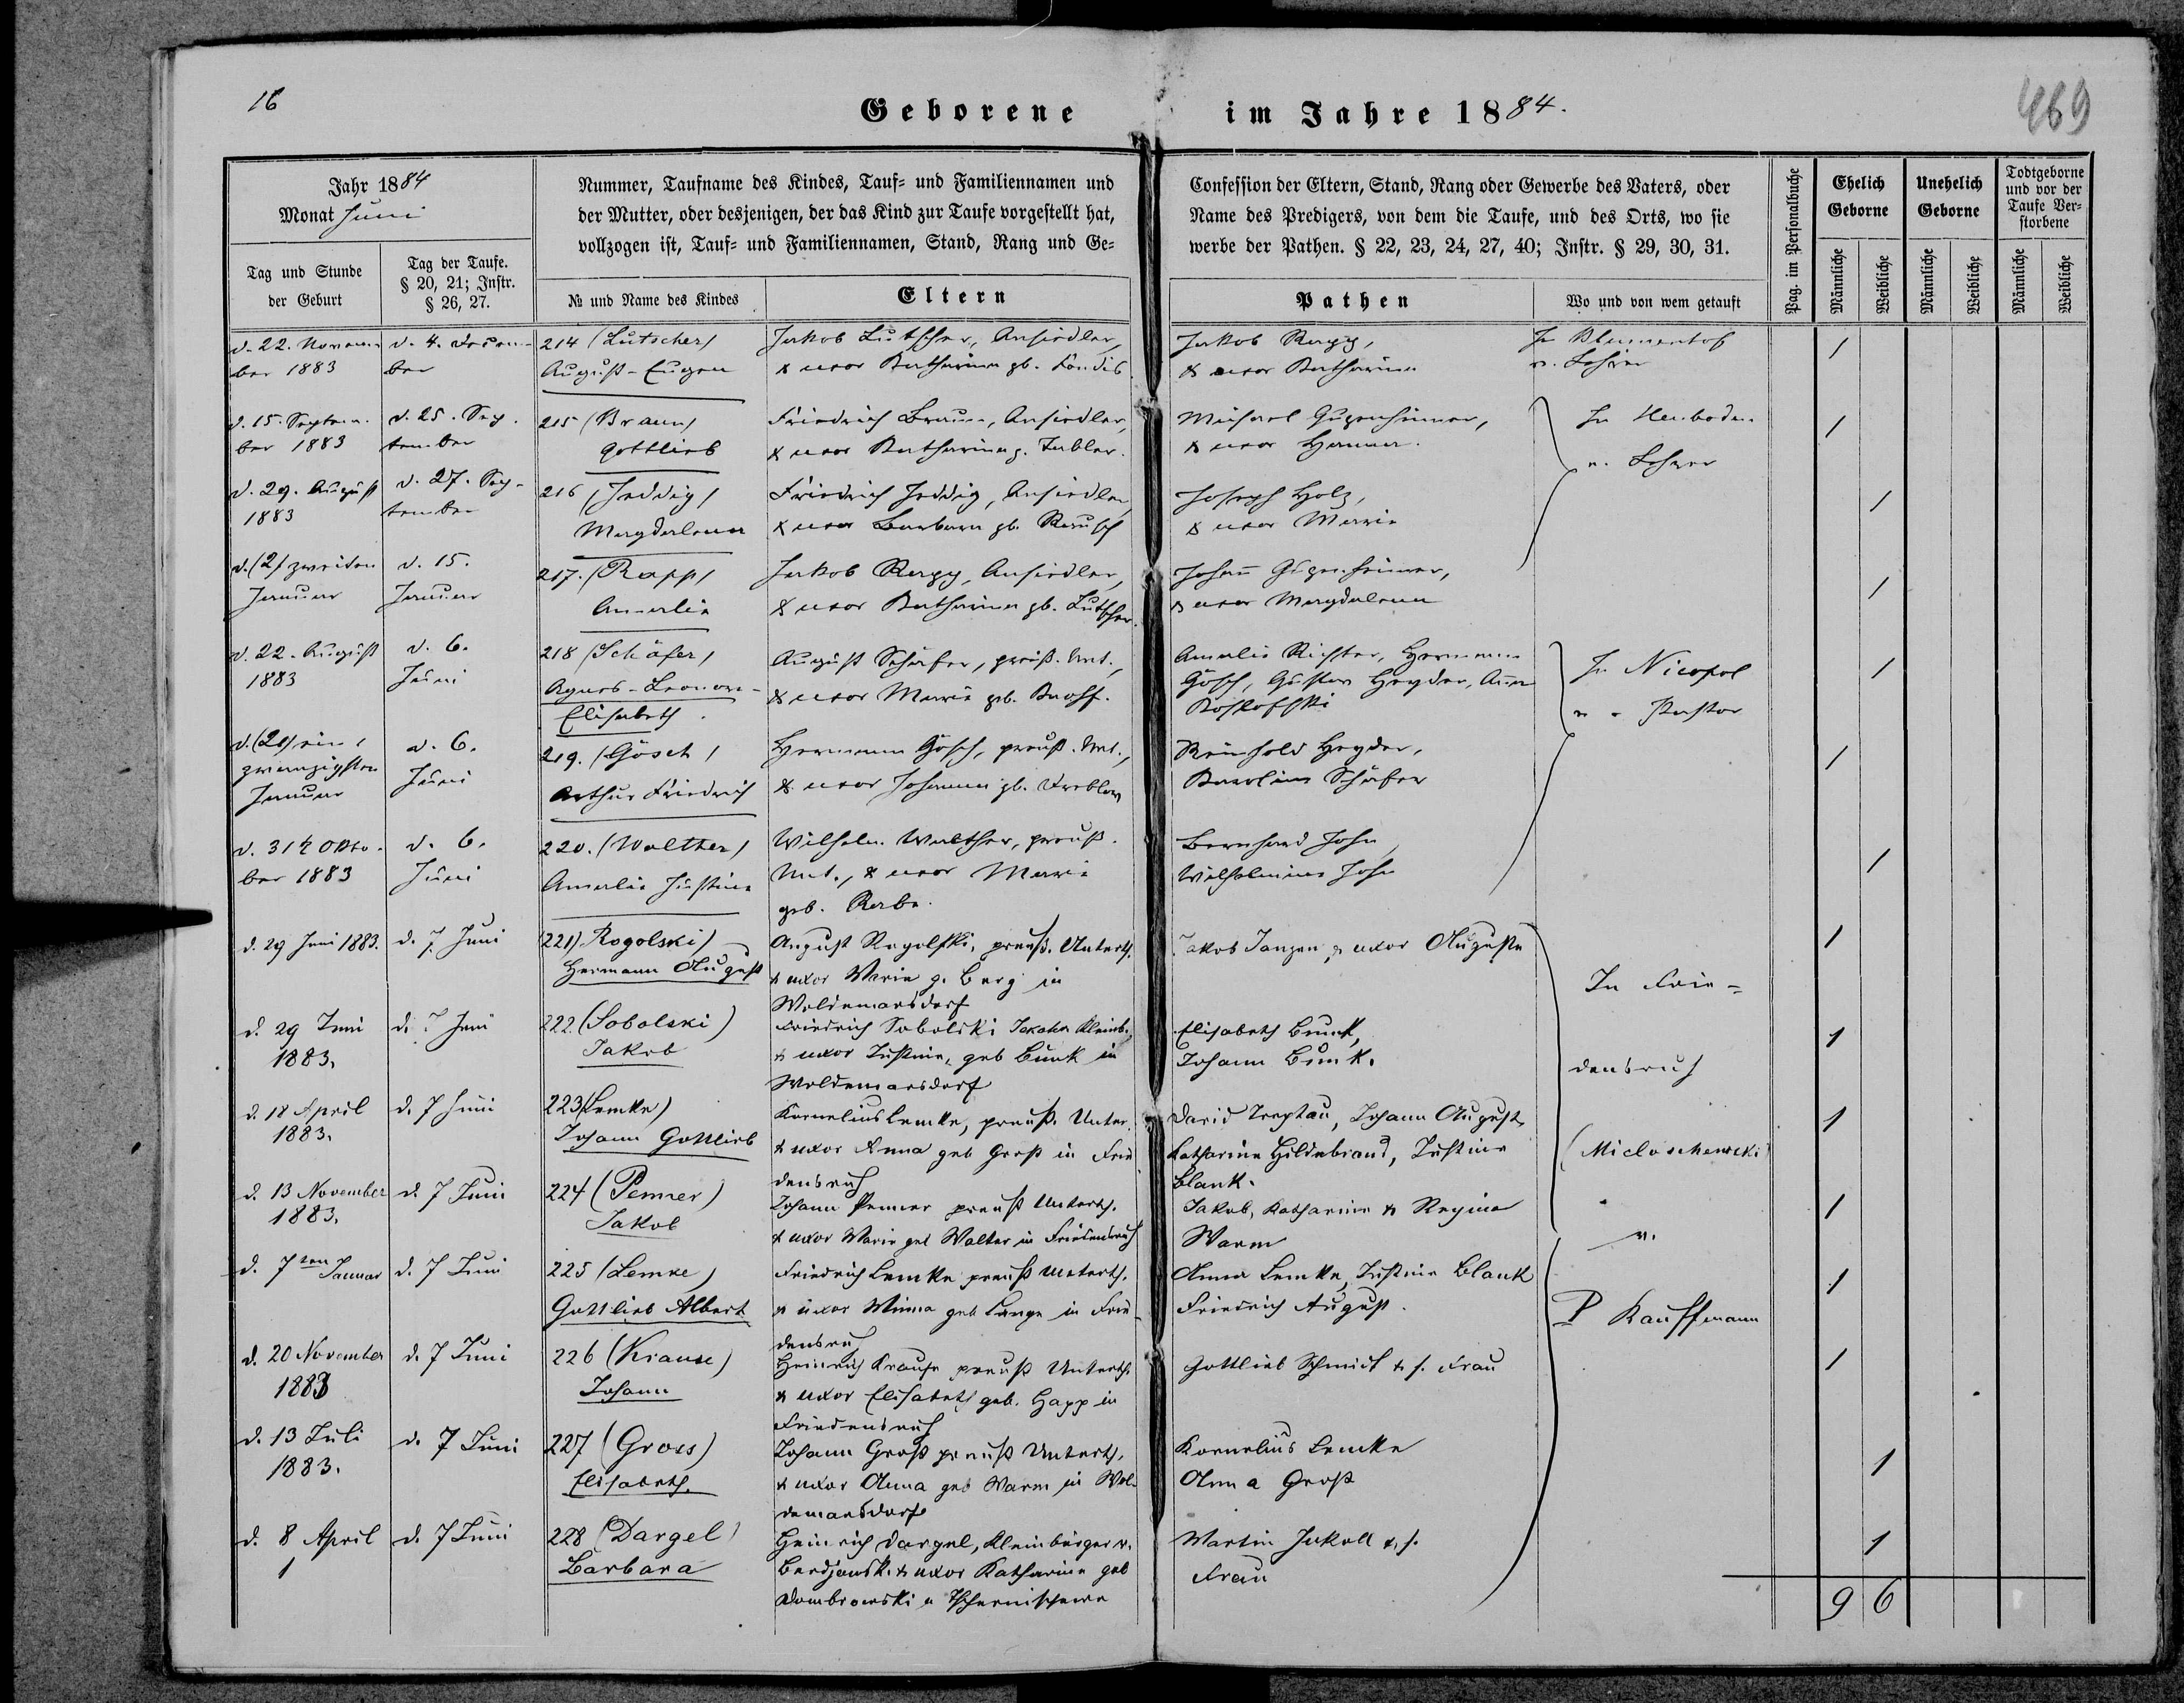 16
Geborene im Jahre 1884.
469
Jahr 1884
Monat Juni
Tag und Stunde
der Geburt
Tag der Taufe.
§ 20, 21; Instr.
§ 26, 27.
Nummer, Taufname des Kindes, Tauf= und Familiennamen und
der Mutter, oder desjenigen, der das Kind zur Taufe vorgestellt hat,
vollzogen ist, Tauf= und Familiennamen, Stand, Rang und Ge=
№ und Name des Kindes
Eltern
Confession der Eltern, Stand, Rang oder Gewerbe des Vaters, oder
Name des Predigers, von dem die Taufe, und des Orts, wo sie
werbe der Pathen. § 22, 23, 24, 27, 40; Instr. § 29, 30, 31.
Pathen
Wo und von wem getauft
Pag. im Personalbuche
Ehelich
Geborne
Unehelich
Geborne
Todtgeborne
und vor der
Taufe Ver=
storbene
Männliche
Weibliche
Männliche
Weibliche
Männliche
Weibliche
d. 22. Novem-
ber 1883
d. 4. Decem-
ber
214 (Lutscher)
August-Eugen
Jakob Lutscher, Ansiedler,
& uxor Katharina gb.
Jakob Rapp,
& uxor Katharina
In Blumenhof
v. Lehrer
1
d. 15. Septem-
ber 1883
d. 25. Sep-
tember
215 (Braun)
Gottlieb
Friedrich Braun, Ansiedler,
& uxor Katharina g. Tabler.
Michael Gugenheimer,
& uxor Hanna.
In Neuboden
v. Lehrer
1
d. 29. August
1883
d. 27. Sep-
tember
216 (Jeddig)
Magdalena
Friedrich Jeddig, Ansiedler
& uxor Barbara gb. Rausch
Joseph Holz,
& uxor Maria
1
d. (2) zweiten
Januar
d. 15.
Januar
217. (Rapp)
Amalia
Jakob Rapp, Ansiedler,
& uxor Katharina gb. Lutscher.
Johann Gugenheimer,
& uxor Magdalena
1
d. 22. August
1883
d. 6.
Juni
218 (Schäfer)
Agnes-Leonore-
Elisabeth.
August Schäfer, preuß. Unt.,
& uxor Maria gb.
Amalie Richter, Hermann
Gösch, Gustav Heyder, Anna
In Nicopol
v. Pastor
1
d. (21) ein
zwanzigsten
Januar
d. 6.
Juni
219. (Gösch)
Arthur Friedrich
Hermann Gösch, preuß. Unt.,
& uxor Johanna gb.
Reinhold Heyder,
Karoline Schäfer
1
d. 31t Okto-
ber 1883
d. 6.
Juni
220. (Walther)
Amalie Justine
Wilhelm Walther, preuß.
Unt., & uxor Maria
geb. Rabe.
Bernhard John,
Wilhelmine John
1
d. 29 Juni 1883.
d. 7. Juni
221) Rogolski)
Hermann August
August Rogolski, preuß. Unterth.
& uxor Maria g. Berg in
Woldemarsdorf
Jakob Janzen, & uxor Auguste
In Frie-
1
d. 29 Juni
1883.
d. 7 Juni
222. (Sobolski)
Jakob
Friedrich Sobolski Kleinb.
& uxor Justine, geb Bunk in
Woldemarsdorf
Elisabeth Bunk,
Johann Bunk.
densruh
1
d. 18 April
1883.
d. 7 Juni
223 (Lemke)
Johann Gottlieb
Kornelius Lemke, preuß. Unter.
& uxor Anna geb Groß in Frie
densruh
David Treptau, Johann August,
Katharina Hildebrand, Justine
Blank.
(Micloschewski)
1
d. 13 November
1883.
d. 7 Juni
224 (Penner)
Jakob
Johann Penner preuß Unterth.
& uxor Maria geb Walter in Friedensruh
Jakob, Katharina & Regina
Warm
v.
1
d. 7ten Januar
d. 7 Juni
225 (Lemke)
Gottlieb Albert
Friedrich Lemke preuß Unterth.
& uxor Minna geb Lange in Frie-
densruh
Anna Lemke, Justine Blank
Friedrich August.
P Kauffmann
1
d. 20 November
1883
d. 7 Juni
226 (Krause)
Johann
Heinrich Krause preuß Unterth.
& uxor Elisabeth geb. Happ in
Friedensruh
Gottlieb Schmidt & s. Frau
1
d. 13 Juli
1883.
d. 7 Juni
227 (Gross)
Elisabeth.
Johann Groß preuß Unterth.
& uxor Anna geb Warm in Wol-
demarsdorf
Kornelius Lemke
Anna Groß
1
d. 8 April
1
d. 7 Juni
228 (Dargel)
Barbara
Heinrich Dargel, Kleinbürger v.
Berdjansk. & uxor Katharina geb
Dombrowski
Martin Jukoll & s.
Frau
1
9 6